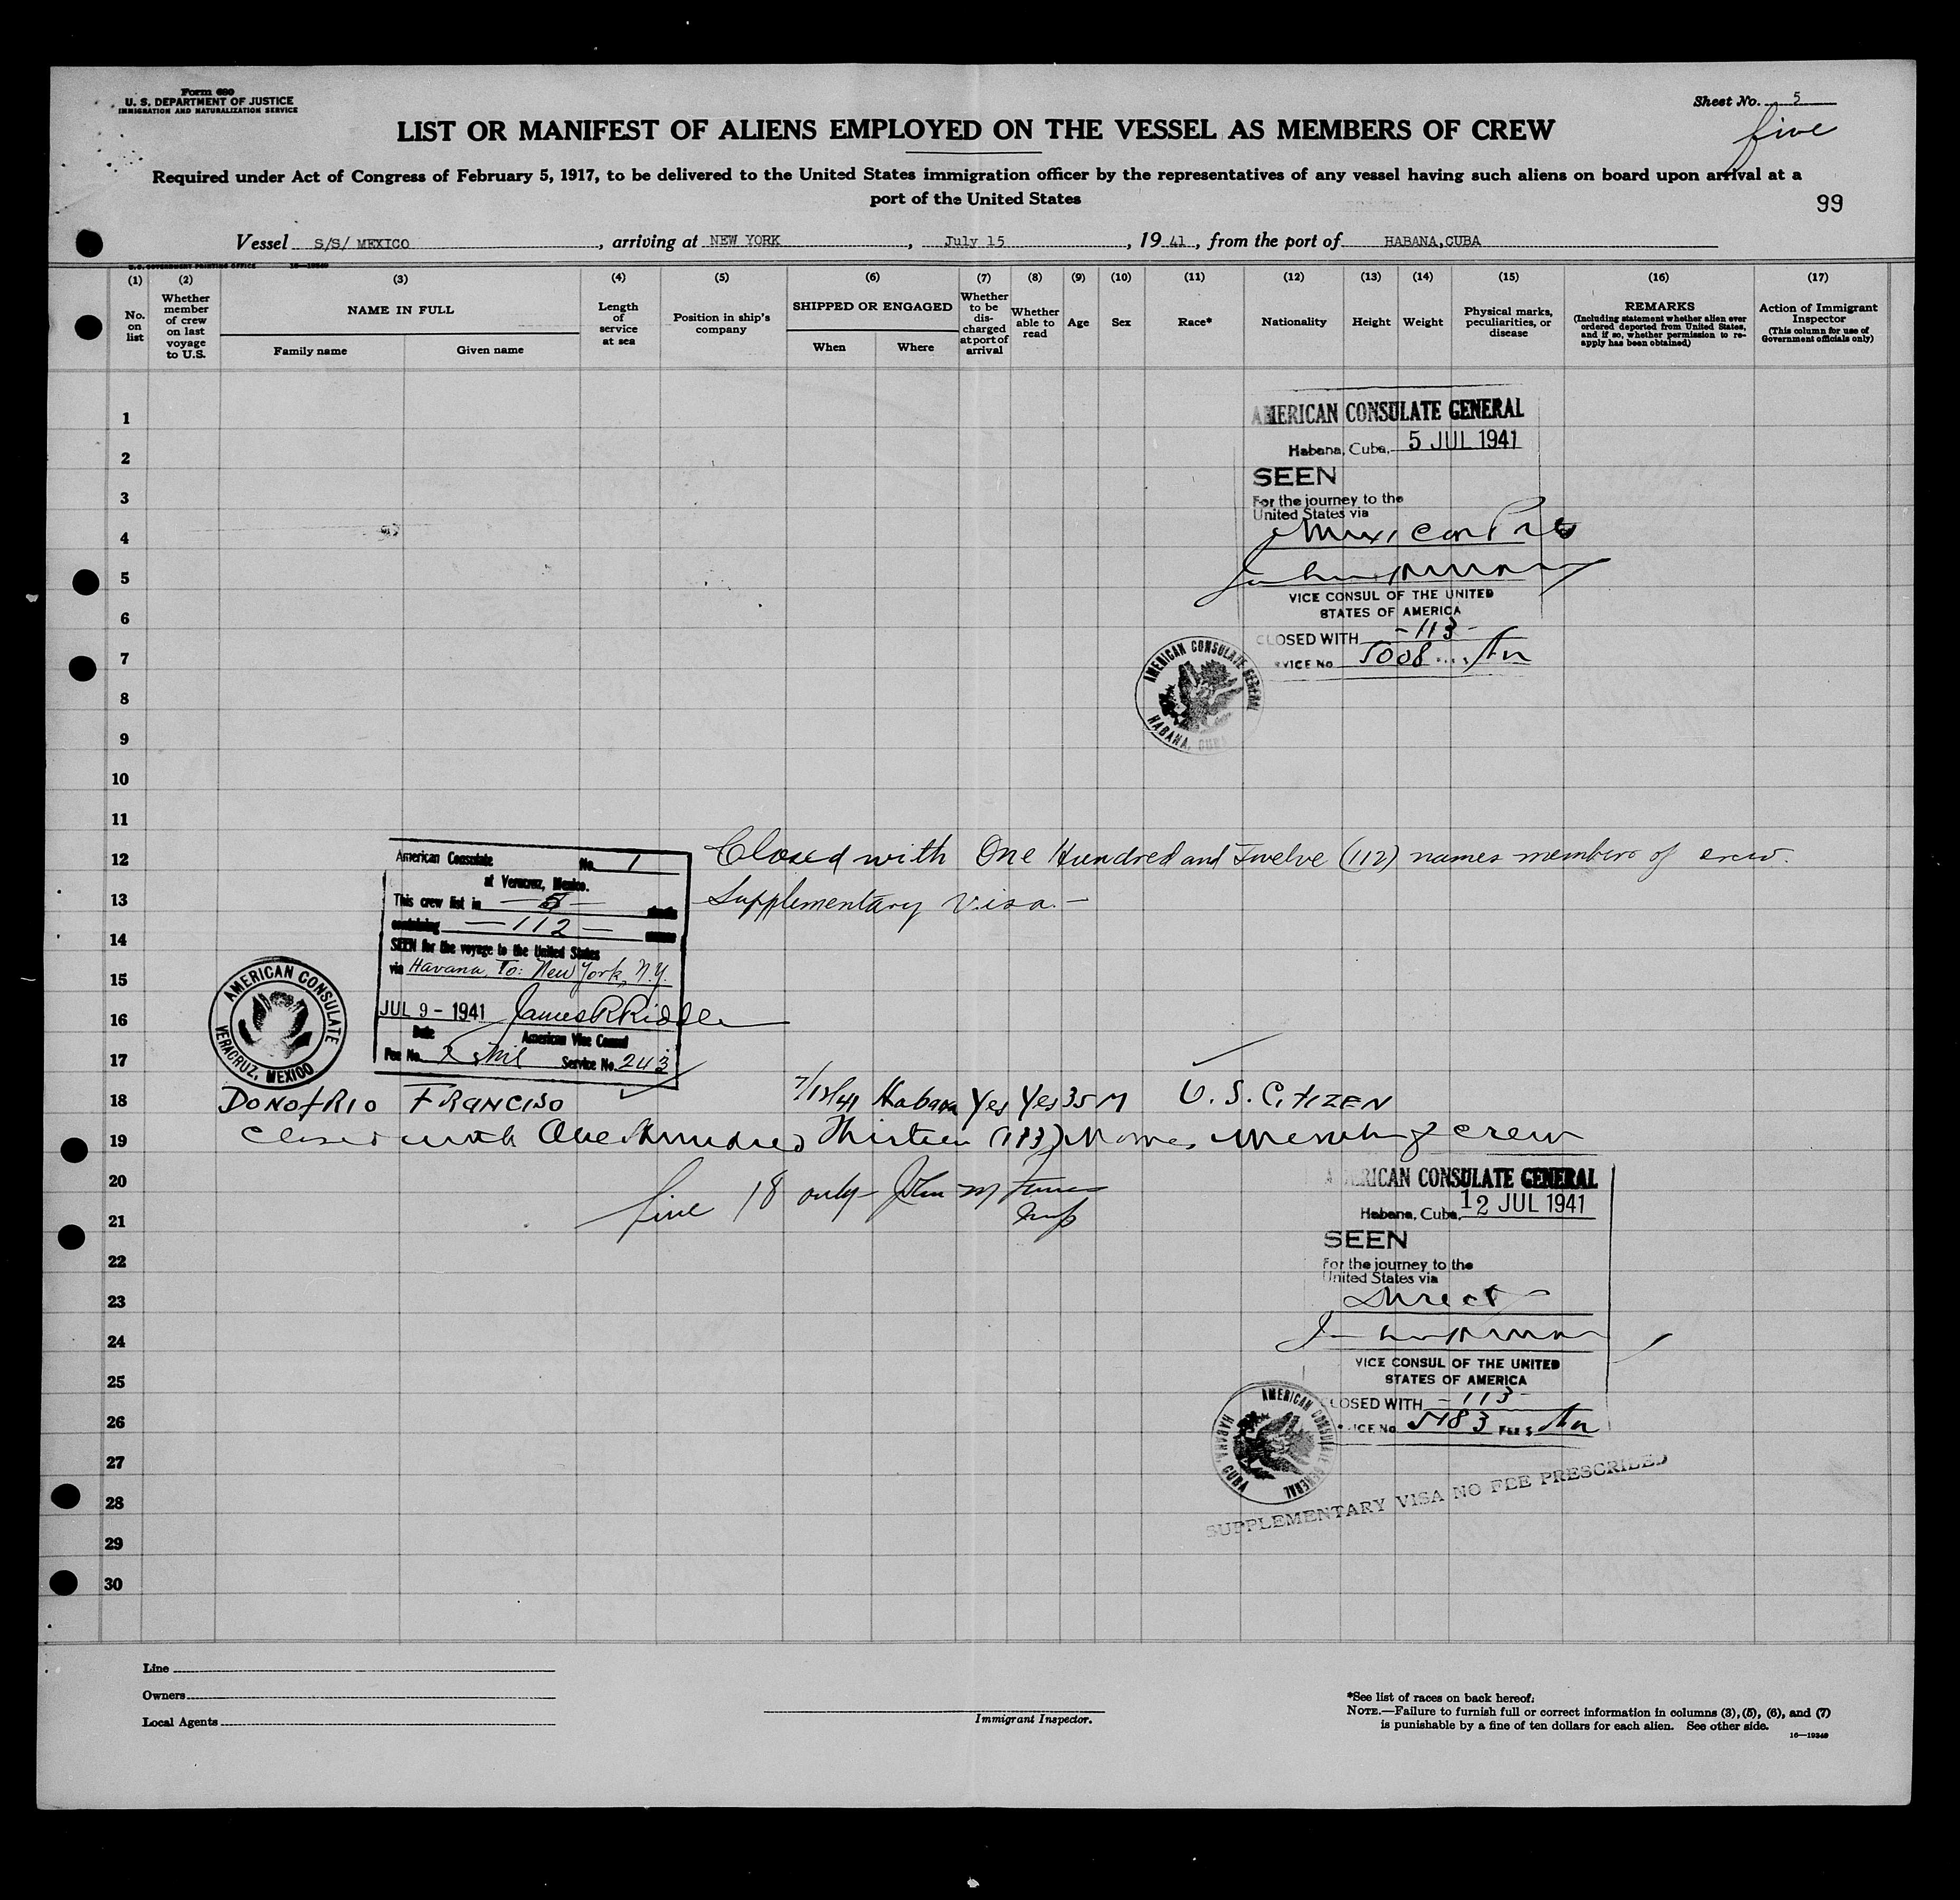 Form 680
U. S. DEPARTMENT OF JUSTICE
IMMIGRATION AND NATURALIZATION SERVICE
Sheet No. 5
five
LIST OR MANIFEST OF ALIENS EMPLOYED ON THE VESSEL AS MEMBERS OF CREW
Required under Act of Congress of February 5, 1917, to be delivered to the United States immigration officer by the representatives of any vessel having such aliens on board upon arrival at a
port of the United States
99
Vessel S/S/ MEXICO, arriving at NEW YORK, July 15, 19 41, from the port of HABANA, CUBA
U.S. GOVERNMENT PRINTING OFFICE 16—19349
(1) No. on list
(2) Whether member of crew on last voyage to U.S.
(3) NAME IN FULL
Family name Given name
(4) Length of service at sea
(5) Position in ship's company
(6) SHIPPED OR ENGAGED
When Where
(7) Whether to be discharged at port of arrival
(8) Whether able to read
(9) Age
(10) Sex
(11) Race*
(12) Nationality
(13) Height
(14) Weight
(15) Physical marks, peculiarities, or disease
(16) REMARKS
(Including statement whether alien ever ordered deported from United States, and if so, whether permission to reapply has been obtained)
(17) Action of Immigrant Inspector
(This column for use of Government officials only)
1
2
3
4
5
6
7
8
9
10
11
12
13
14
15
16
17
18
19
20
21
22
23
24
25
26
27
28
29
30
AMERICAN CONSULATE GENERAL
Habana, Cuba, 5 JUL 1941
SEEN
For the journey to the
United States via
Mexican Pts
VICE CONSUL OF THE UNITED
STATES OF AMERICA
CLOSED WITH -113-
VICE No 5008
AMERICAN CONSULATE GENERAL
HABANA, CUBA
Closed with One Hundred and Twelve (112) names members of crew.
Supplementary Visa.—
American Consulate No. 1
at Veracruz, Mexico.
This crew list in — 5 — sheets
containing — 112 — names
SEEN for the voyage to the United States
via Havana, To: New York, N.Y.
JUL 9 - 1941 James R Riddle
Date American Vice Consul
Fee No. Service No. 243
AMERICAN CONSULATE
VERACRUZ, MEXICO
DONOFRIO FRANCISO 7/12/41 Habana Yes Yes 35 M U.S. CITIZEN
Closed with One Hundred Thirteen (113) Names Members of crew
line 18 only - John M
AMERICAN CONSULATE GENERAL
Habana, Cuba, 12 JUL 1941
SEEN
For the journey to the
United States via
Direct
VICE CONSUL OF THE UNITED
STATES OF AMERICA
CLOSED WITH -113-
VICE No 5183 FEE $
AMERICAN CONSULATE GENERAL
HABANA, CUBA
SUPPLEMENTARY VISA NO FEE PRESCRIBED
Line
Owners
Local Agents
Immigrant Inspector.
*See list of races on back hereof.
NOTE.—Failure to furnish full or correct information in columns (3), (5), (6), and (7)
is punishable by a fine of ten dollars for each alien. See other side.
16—19349